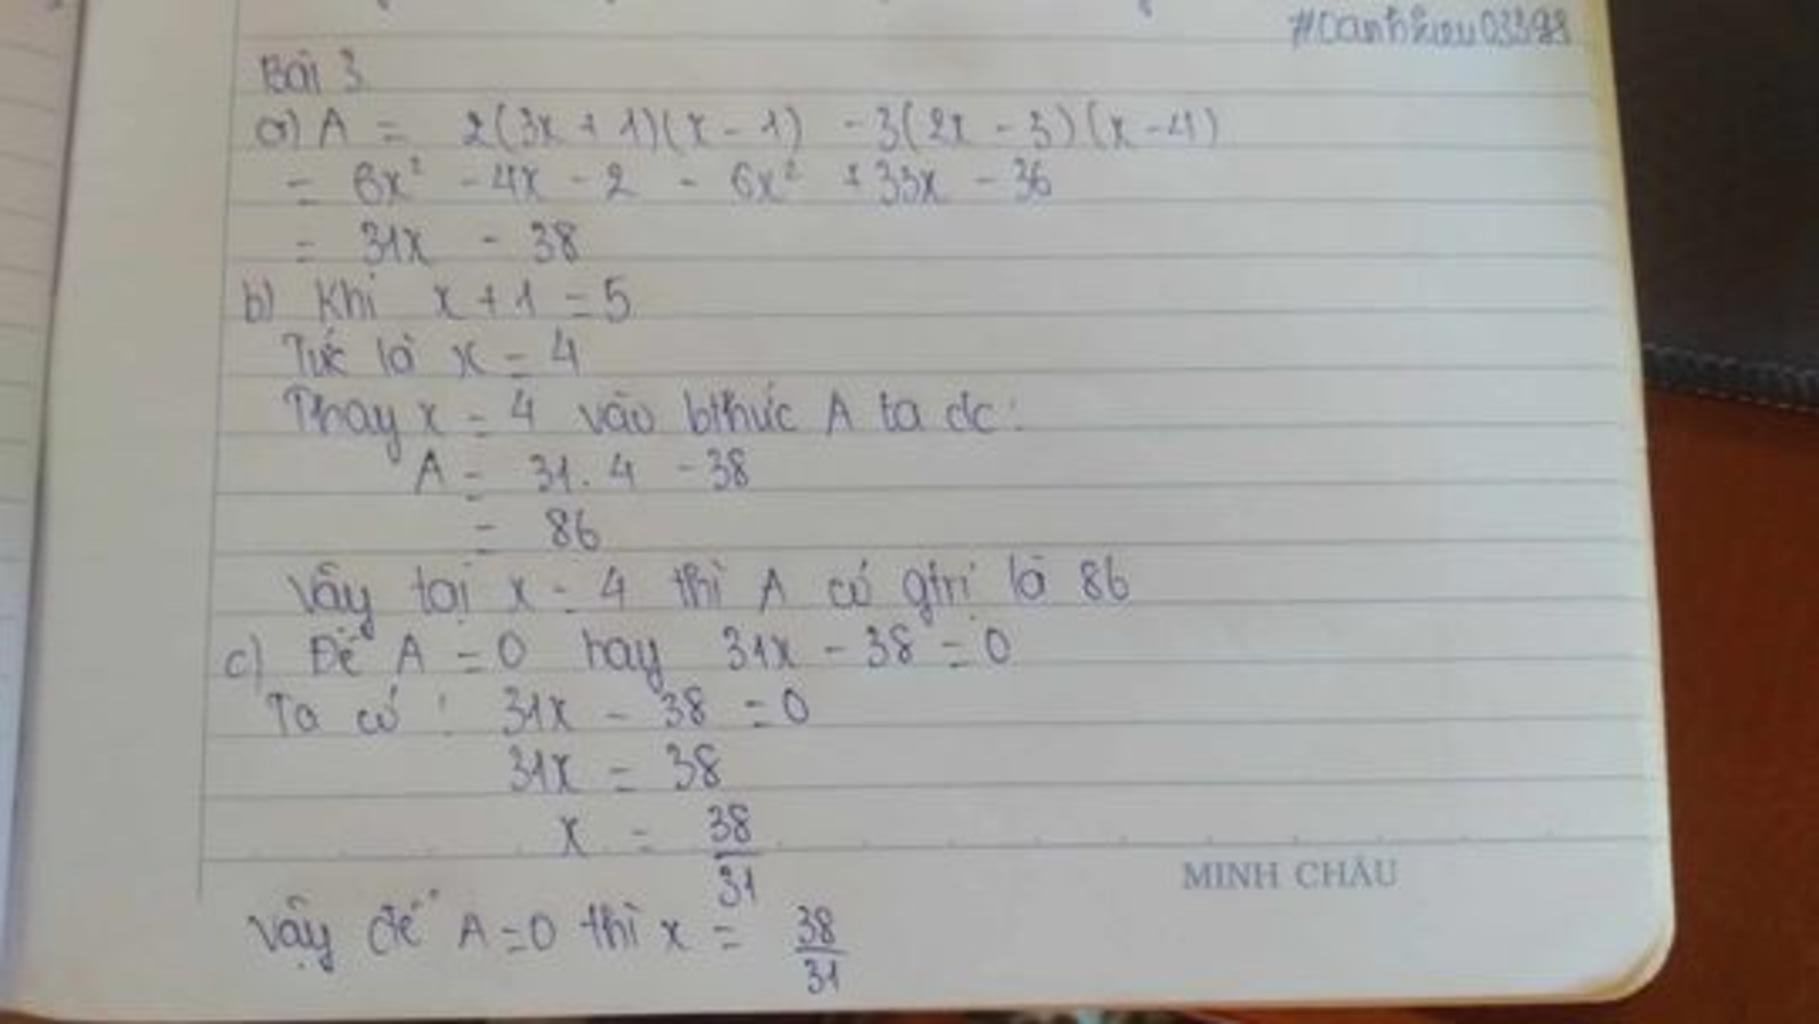 #Danhkeu03398
Bài 3
a) A = 2(3x + 1)(x - 1) - 3(2x - 3)(x - 4)
= 6x² - 4x - 2 - 6x² + 33x - 36
= 31x - 38
b) Khi x + 1 = 5
Tức là x = 4
Thay x = 4 vào bthức A ta đc:
A = 31. 4 - 38
= 86
Vậy tại x = 4 thì A có gtrị là 86
c) Để A = 0 hay 31x - 38 = 0
Ta có : 31x - 38 = 0
31x = 38
x = 38/31
MINH CHÂU
Vậy để A=0 thì x = 38/31